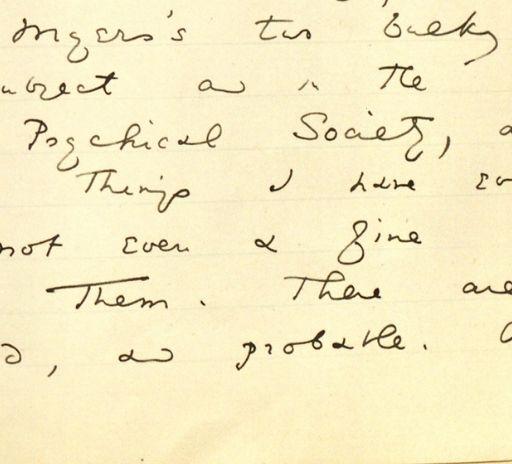 Myers's two bulky
ubject as in the
Psychical Society, a
Things I have ev
not even a fine
Them. There are
d, as probable.